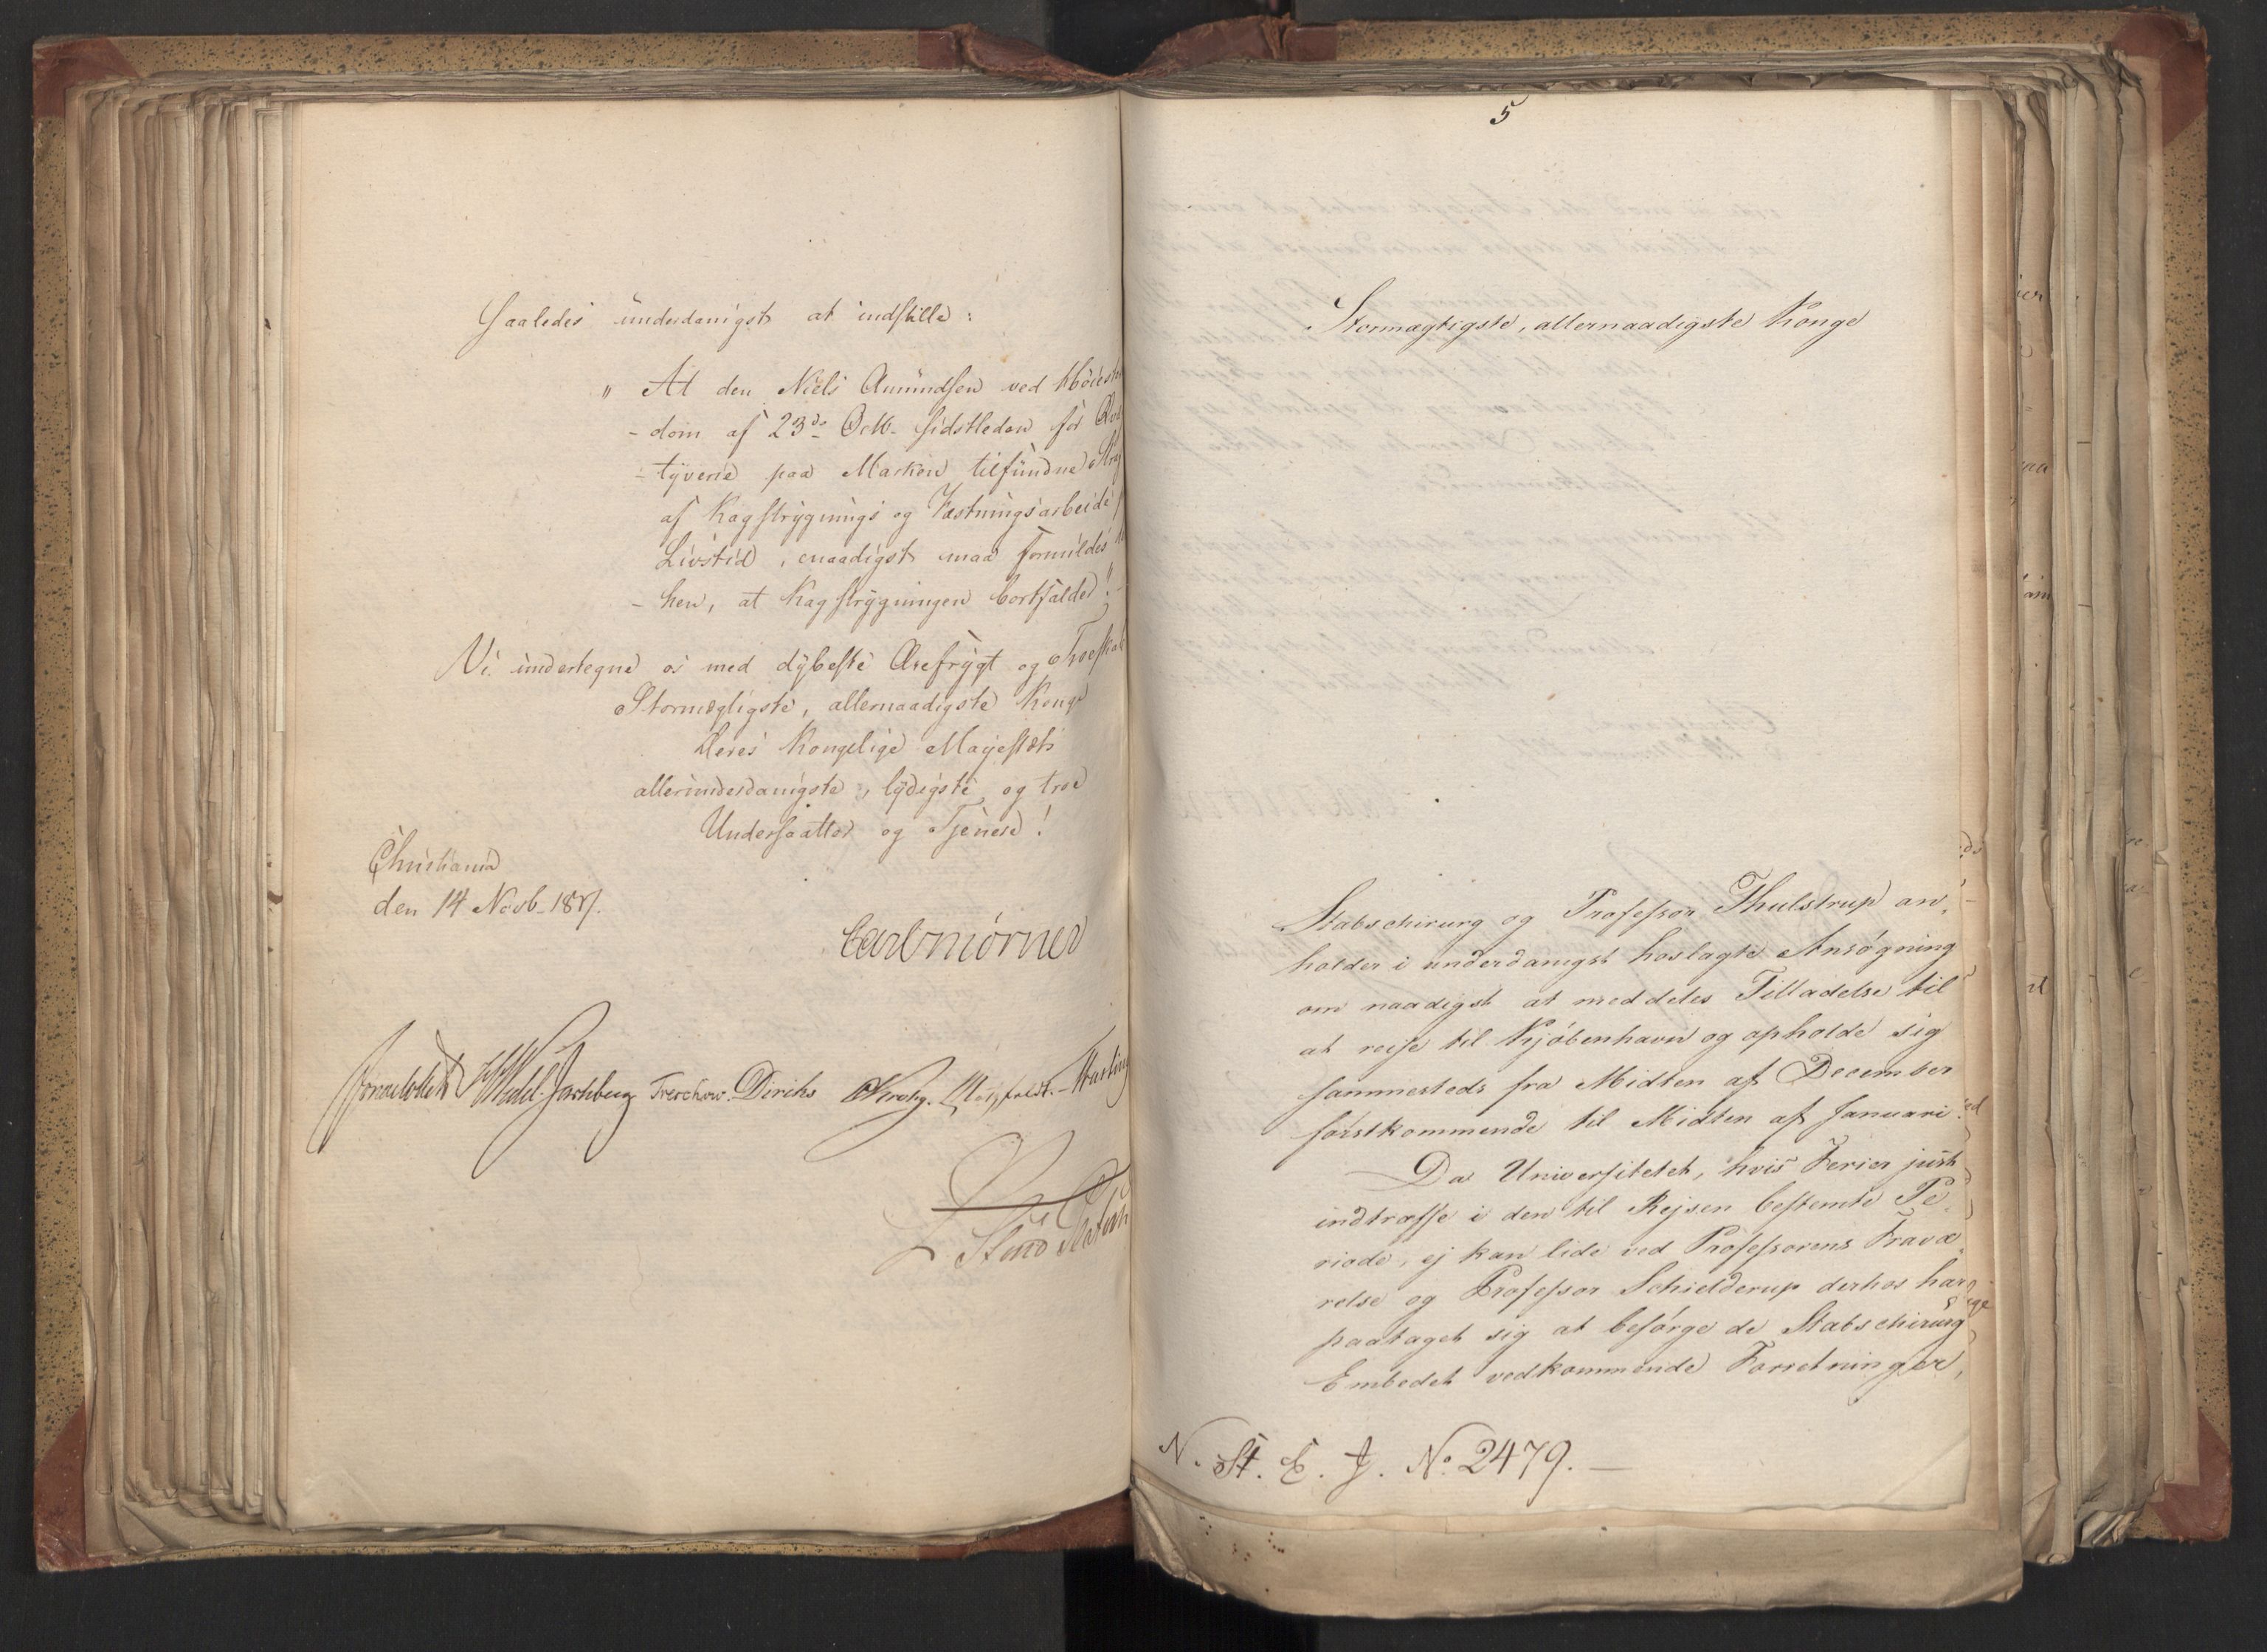 Saaledes underdanigst at indstille:
" At den Niels Amundsen ved Höieste
- dom af 23de Octb. sidstleden for Qvæg
- tyverie paa Marken tilfundne Straf
af Kagstrygnings og Fæstningsarbeide
Livstid, naadigst maa formildes
- hen, at Kagstrygningen bortfalder!"
Vi undertegne os med dybeste Ærefrygt og Troeskab
Stormægtigste, allernaadigste Konge
Deres Kongelige Majestæts
allerunderdanigste, lydigste og troe
Undersaatter og Tjenere!
Christiania
den 14 Novb. 1817.
Carl Mörner
Sommerhielm Wedel-Jarlsberg Treschow. Diriks Krog. Motzfeldt. Hasting
5
Stormægtigste, allernaadigste Konge
Stabschirurg og Professor Thulstrup an„
holder i underdanigst hoslagte Ansøgning
om naadigst at meddeles Tilladelse til
at reise til Kjöbenhavn og opholde sig
sammesteds fra Midten af December
førstkommende til Midten af Januari
Da Universitetet, hvis Ferier just
indtræffe i den til Rejsen bestemte Pe„
riode, ej kan lide ved Professorens Fravæ„
relse og Professor Schielderup derhos har
paataget sig at besørge de Stabschirurg
Embedet vedkommende Forretninger,
N. St. E. J. No. 2479.